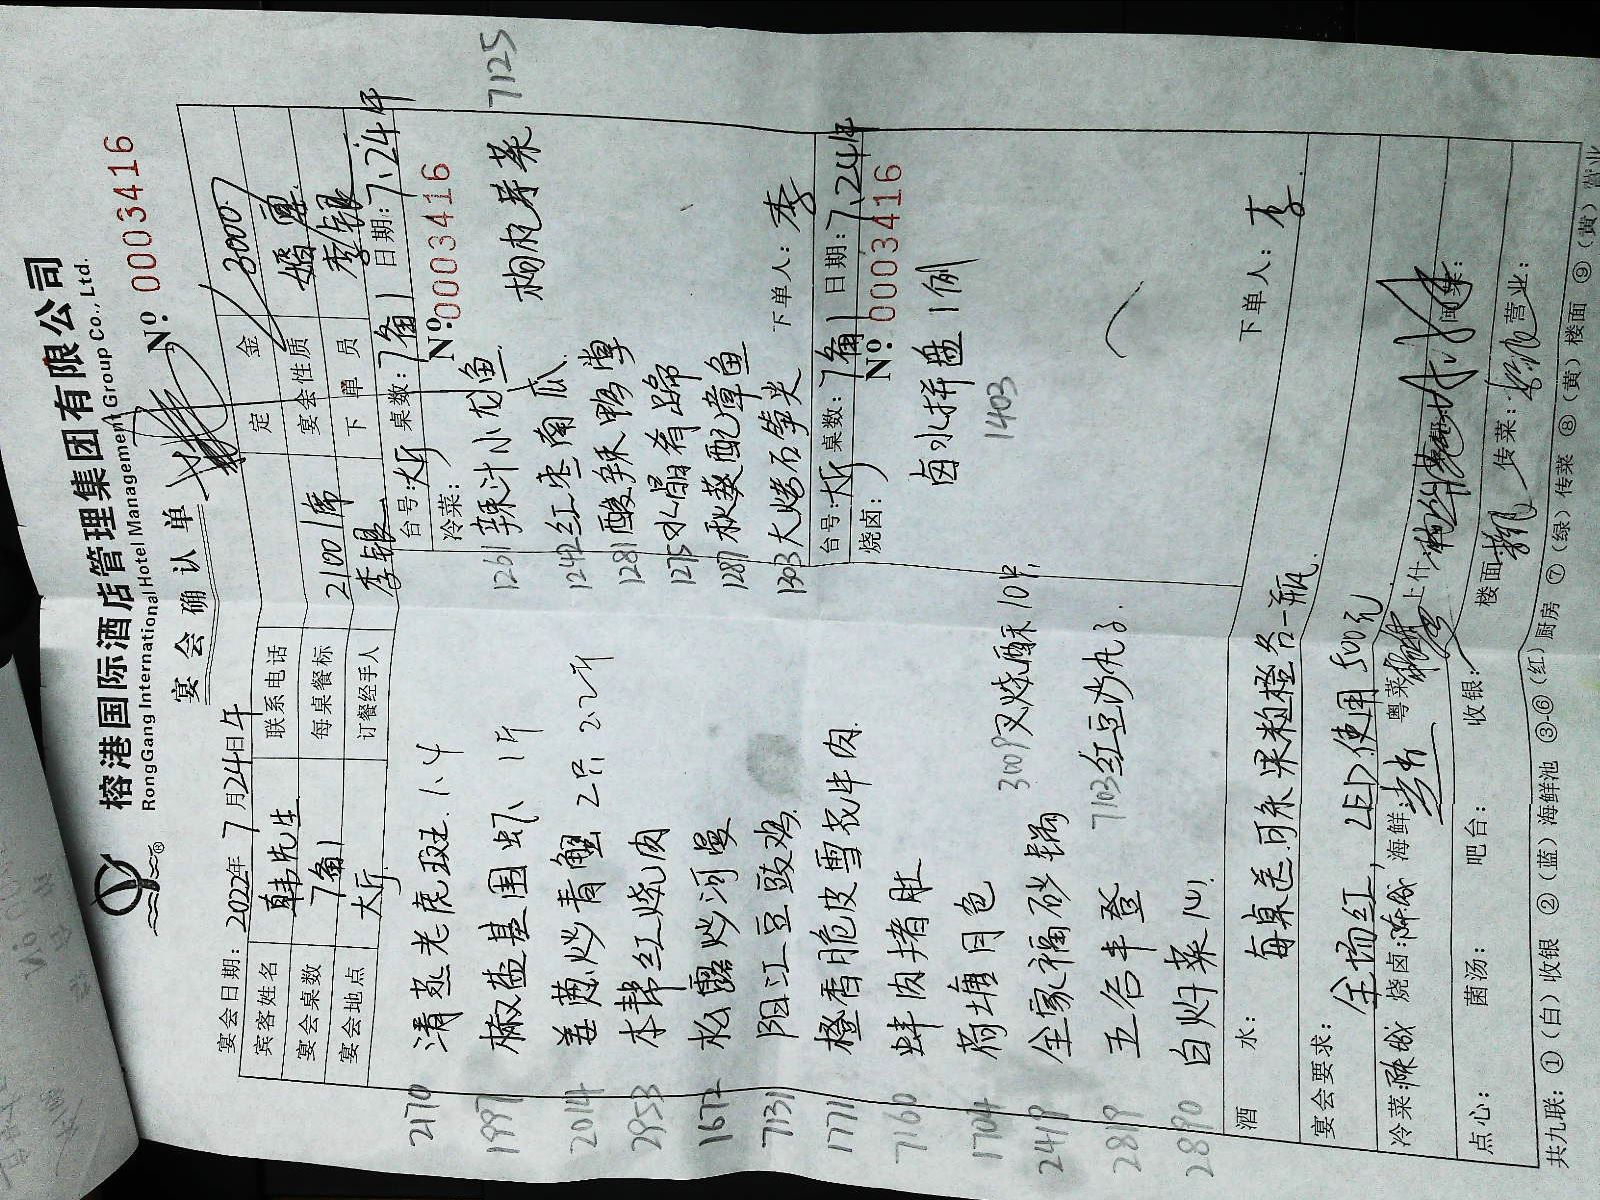 榕港国际酒店管理集团有限公司
RongGang International Hotel Management Group Co., Ltd.
宴会确认单
No: 0003416
宴会日期: 2022年 7月24日午
宾客姓名 韩先生 联系电话 定金 3000
宴会桌数 7备1 每桌餐标 2100/席 宴会性质 婚宴
宴会地点 大厅 订餐经手人 李银 下单员 李银
台号: 大厅 桌数: 7备1 日期: 7.24午
冷菜: No: 0003416
2170 清蒸老虎斑 1.4
1997 椒盐基围虾 1斤
2014 姜葱炒青蟹 2只 2.2斤
2953 本帮红烧肉
1672 松露炒河曼
7131 阳江豆豉鸡
1771 橙香脆皮雪花牛肉
7160 蚌肉猪肚
1704 荷塘月色
2419 全家福砂锅
2819 五谷丰登
2890 白灼菜心
3009 叉烧酥10个
7103 红豆沙丸子
1261 辣汁小龙鱼
1242 红枣南瓜
1281 酸辣鸭掌
1275 水晶肴蹄
1287 秋葵配章鱼
1203 大烤石笋尖
枸杞芽菜 7125
下单人: 李
台号: 大厅 桌数: 7备1 日期: 7.24午
烧卤: No: 0003416
卤水拼盘1例
1403
下单人: 李
酒水: 每桌送可乐果粒橙各一瓶
宴会要求: 全场红, LED使用500元
冷菜: 烧卤: 海鲜: 粤菜: 上什: 本帮: 闽菜:
点心: 菌汤: 吧台: 收银: 楼面: 传菜: 营业:
共九联: ①(白)收银 ②(蓝)海鲜池 ③-⑥(红)厨房 ⑦(绿)传菜 ⑧(黄)楼面 ⑨(黄)营业